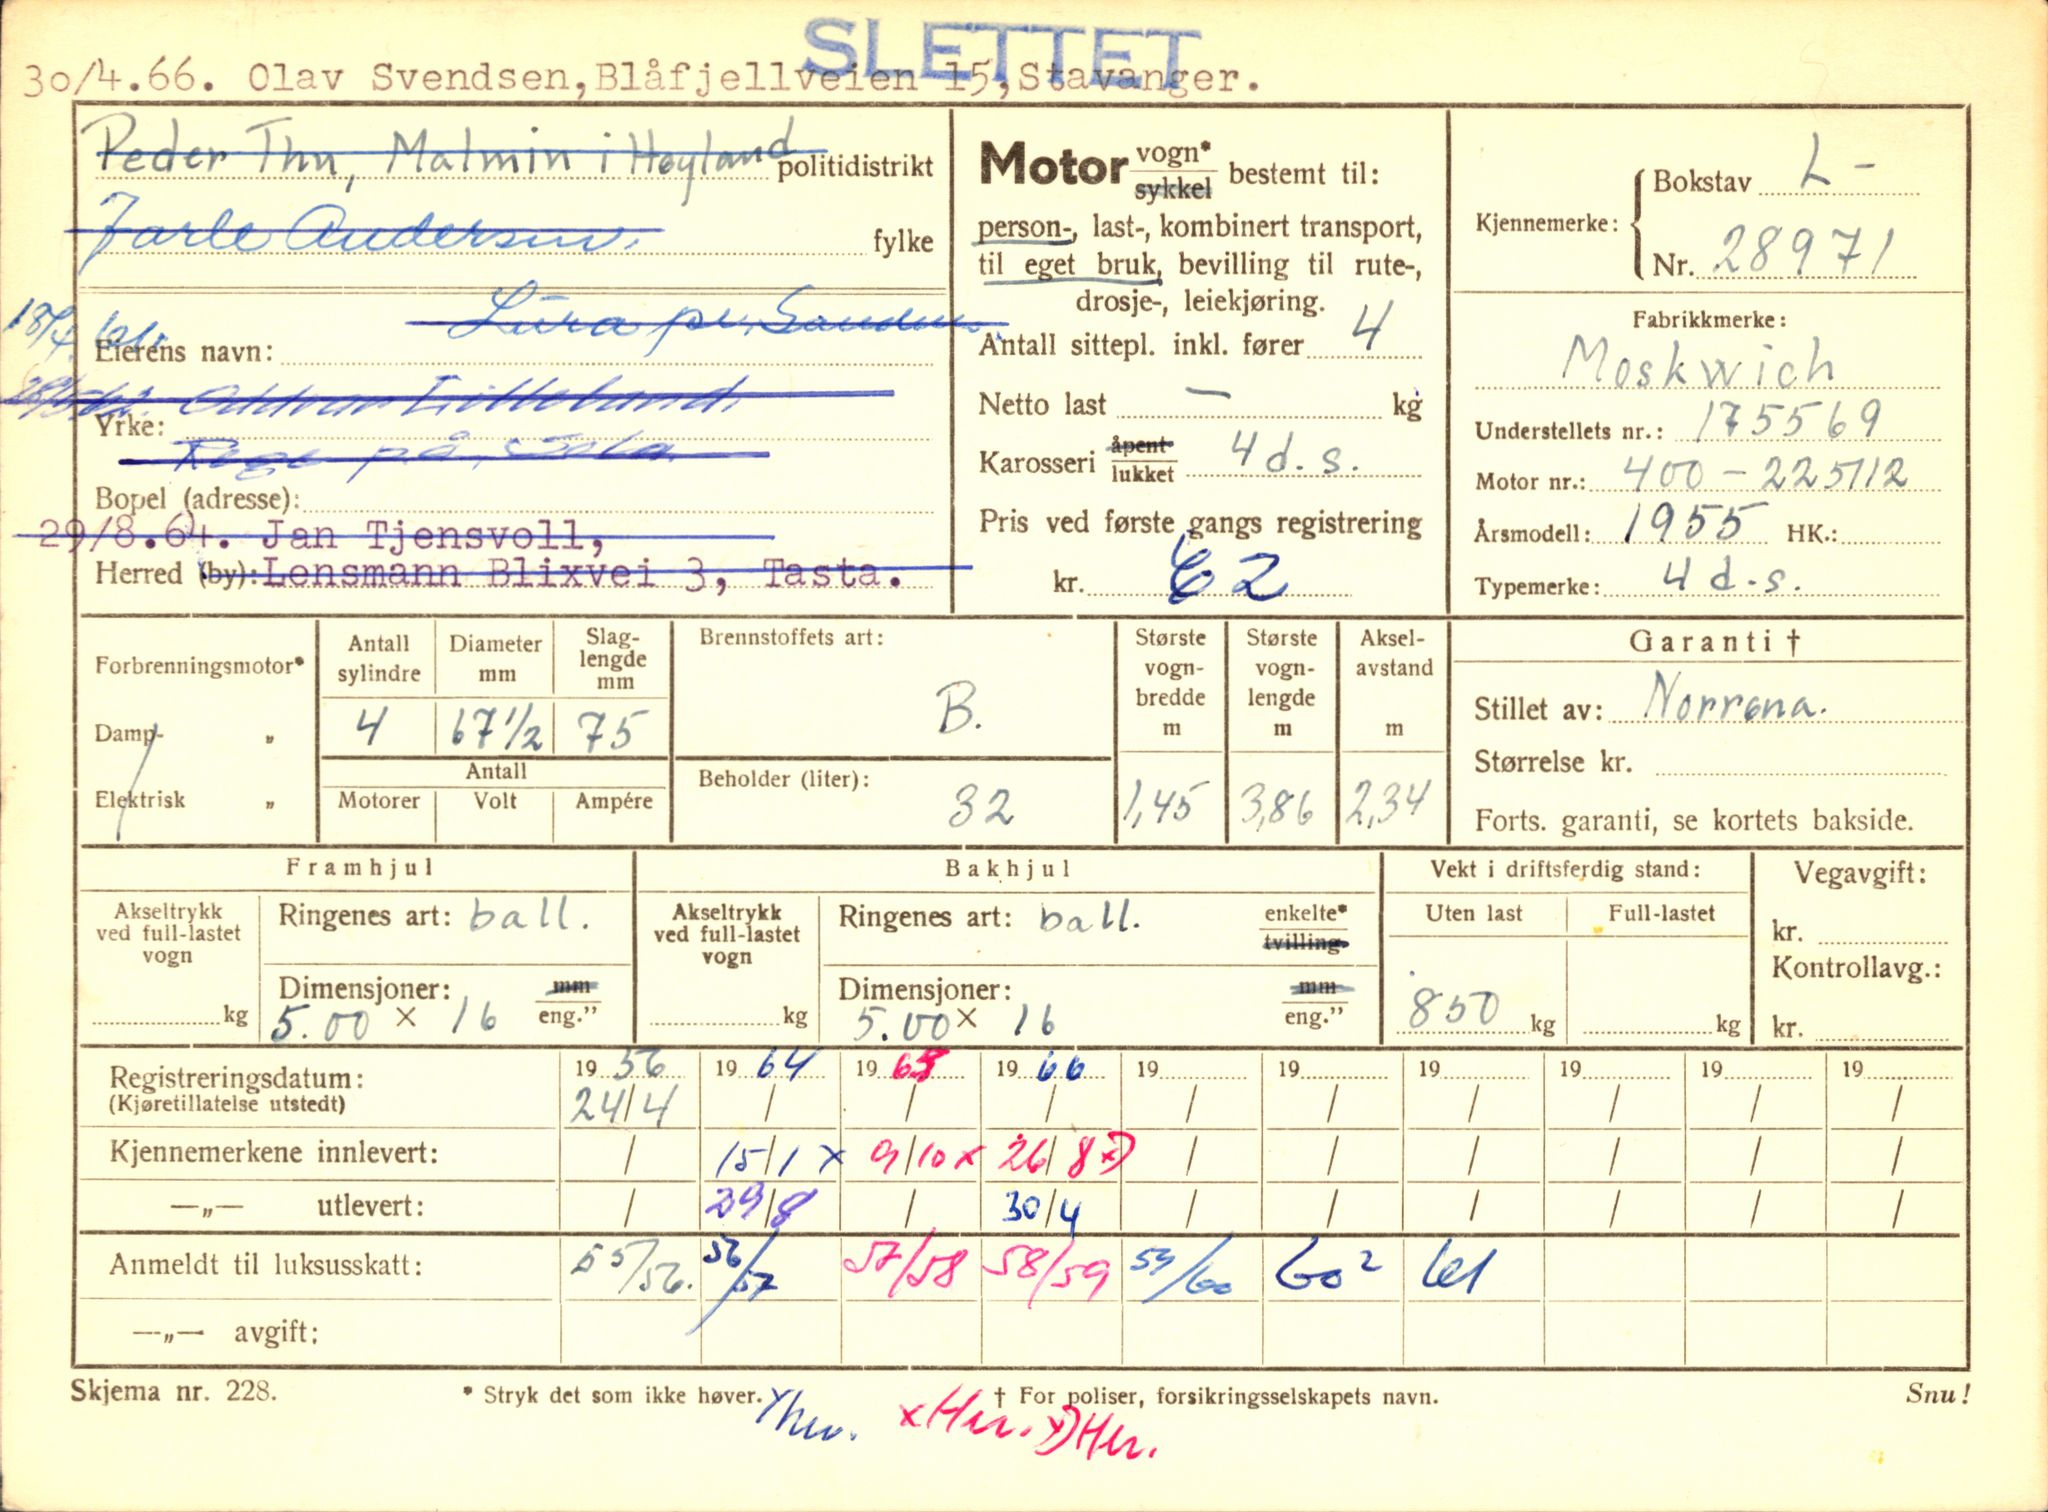 SLETTET
30/4.66. Olav Svendsen, Blåfjellveien 15, Stavanger.
Peder Thu, Malmin i Høyland politidistrikt
Jarle Andersen. fylke
18/4 61. Lura pr. Sandnes
Eierens navn:
Oddvar Lilleland.
Yrke:
Rege på Sola
Bopel (adresse):
29/8.64. Jan Tjensvoll,
Herred (by): Lensmann Blixvei 3, Tasta.
Motor vogn* sykkel bestemt til:
person-, last-, kombinert transport,
til eget bruk, bevilling til rute-,
drosje-, leiekjøring.
Antall sittepl. inkl. fører 4
Netto last — kg
Karosseri åpent lukket 4 d. s.
Pris ved første gangs registrering
kr. 62
Kjennemerke: Bokstav L -
Nr. 28971
Fabrikkmerke:
Moskwich
Understellets nr.: 175569
Motor nr.: 400 - 225112
Årsmodell: 1955 HK.:
Typemerke: 4 d.s.
Forbrenningsmotor*
Damp- „
Elektrisk „
Antall sylindre 4
Diameter mm 67 1/2
Slag-lengde mm 75
Antall
Motorer Volt Ampére
Brennstoffets art: B.
Beholder (liter): 32
Største vogn-bredde m 1,45
Største vogn-lengde m 3,86
Aksel-avstand m 2,34
Garanti †
Stillet av: Norrøna.
Størrelse kr.
Forts. garanti, se kortets bakside.
Framhjul
Akseltrykk ved full-lastet vogn kg
Ringenes art: ball.
Dimensjoner: mm
5.00 x 16 eng.”
Bakhjul
Akseltrykk ved full-lastet vogn kg
Ringenes art: ball. enkelte* tvilling-
Dimensjoner: mm
5.00 x 16 eng.”
Vekt i driftsferdig stand:
Uten last Full-lastet
850 kg kg
Vegavgift:
kr.
Kontrollavg.:
kr.
Registreringsdatum: 19 56 19 64 19 65 19 66 19 19 19 19 19 19
(Kjøretillatelse utstedt) 24/4 / / / / / / / / /
Kjennemerkene innlevert: / 15/1 x 9/10 x 26/8 x) / / / / / /
—„— utlevert: / 29/8 / 30/4 / / / / / /
Anmeldt til luksusskatt: 55/56. 56/57 57/58 58/59 59/60 60² 61
—„— avgift:
Skjema nr. 228. * Stryk det som ikke høver. † For poliser, forsikringsselskapets navn. Snu!
x Her. x) Her.